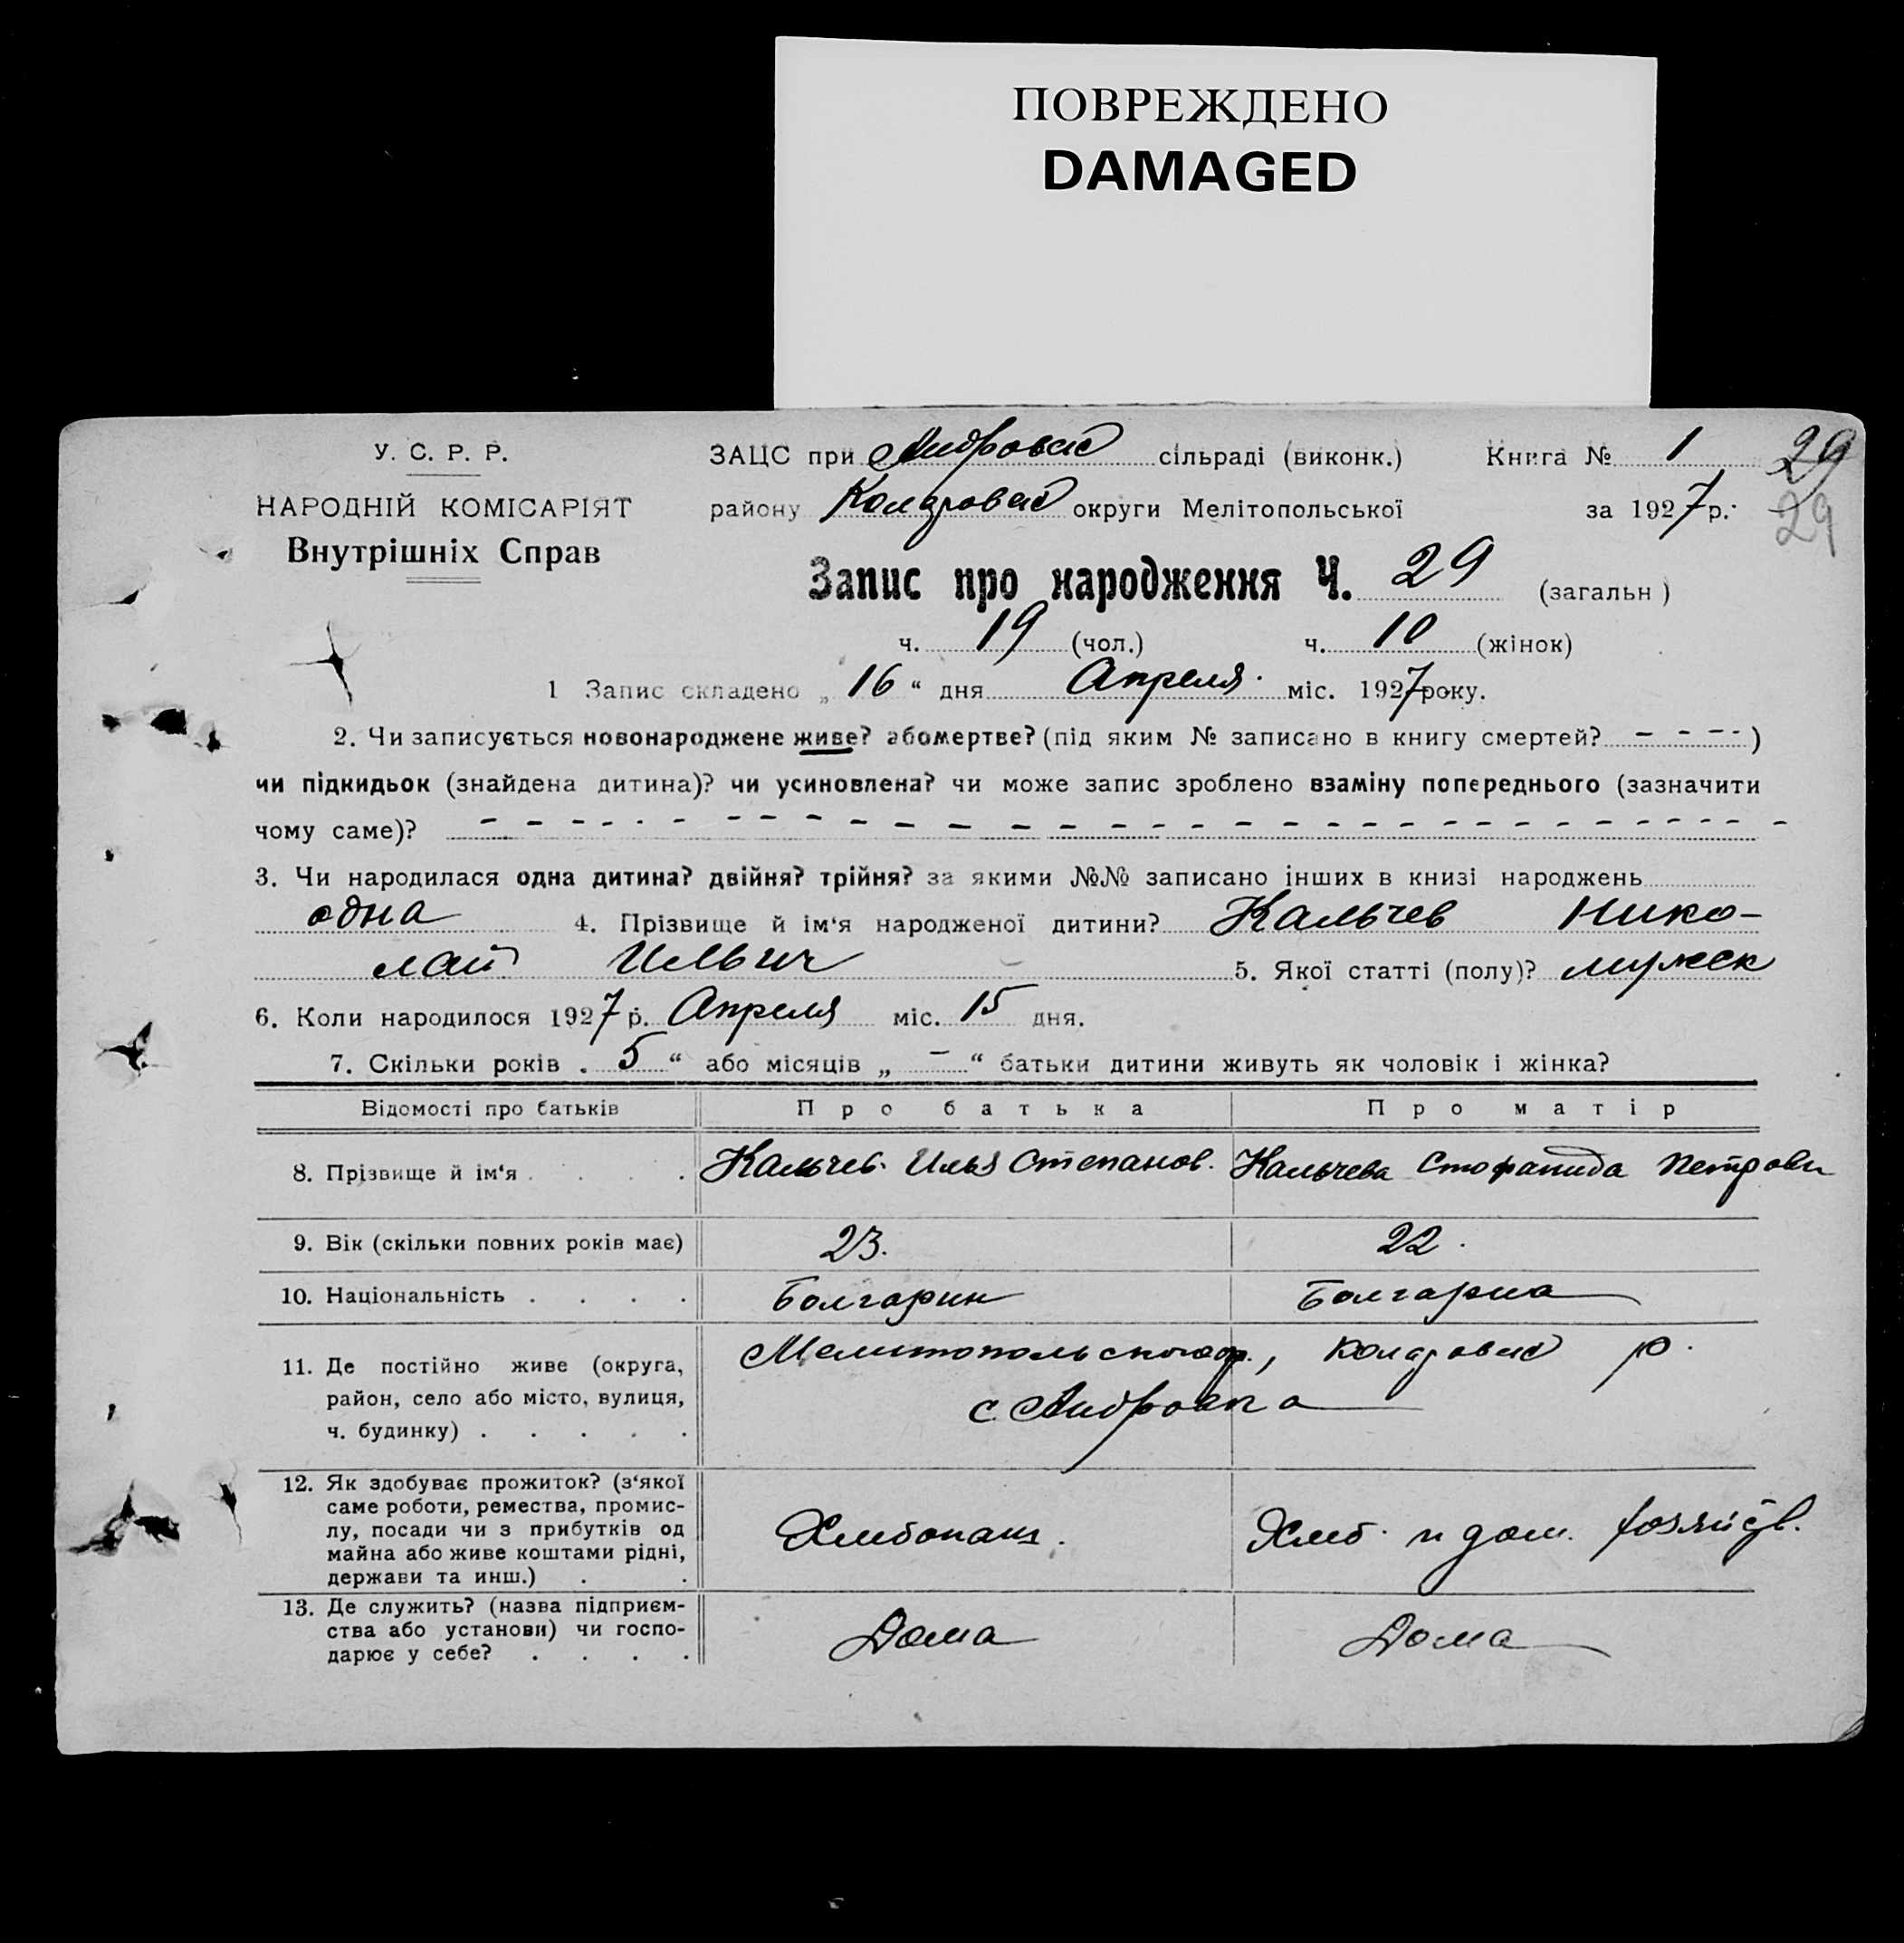 ПОВРЕЖДЕНО
DAMAGED
У. С. Р. Р.
НАРОДНІЙ КОМІСАРІЯТ
Внутрішніх Справ
ЗАЦС при Андровск сільраді (виконк.) Книга № 1 29
району Коларовск округи Мелітопольської за 1927 р. 29
Запис про народження Ч. 29 (загальн)
ч. 19 (чол.) ч. 10 (жінок)
1 Запис складено „ 16 “ дня Апреля міс. 1927 року.
2. Чи записується новонароджене живе? або мертве? (під яким № записано в книгу смертей? - - - - )
чи підкидьок (знайдена дитина)? чи усиновлена? чи може запис зроблено взаміну попереднього (зазначити
чому саме)? - - - - - - - - - - - - - - - - - - - - - - - - - - -
3. Чи народилася одна дитина? двійня? трійня? за якими №№ записано інших в книзі народжень
одна 4. Прізвище й ім‘я народженої дитини? Кальчев Нико-
лай Ильич 5. Якої статті (полу)? мужск
6. Коли народилося 1927 р. Апреля міс. 15 дня.
7. Скільки років „ 5 “ або місяців „ - “ батьки дитини живуть як чоловік і жінка?
Відомості про батьків Про батька Про матір
8. Прізвище й ім‘я . . . . Кальчев Илья Степанов. Кальчева Стофанида Петровн
9. Вік (скільки повних років має) 23. 22.
10. Національність . . . . Болгарин Болгарка
11. Де постійно живе (округа,
район, село або місто, вулиця,
ч. будинку) . . . . .
Мелитопольского окр., Коларовск р.
с. Андровка
12. Як здобуває прожиток? (з‘якої
саме роботи, ремества, промис-
лу, посади чи з прибутків од
майна або живе коштами рідні,
держави та инш.) . .
Хлибопаш. Хлиб. и дом. хозяйств.
13. Де служить? (назва підприєм-
ства або установи) чи госпо-
дарює у себе? . . . .
Дома Дома